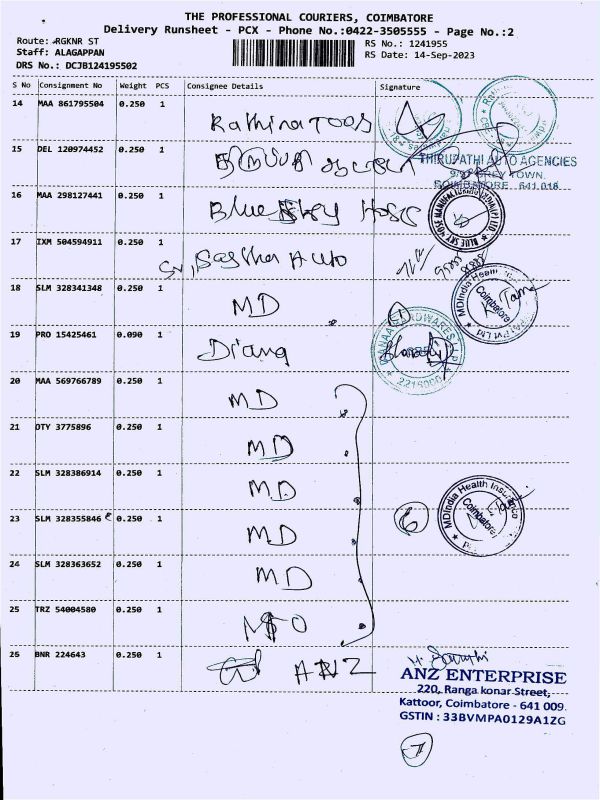 THE PROFESSIONAL COURIERS, COIMBATORE
Delivery Runsheet - PCX - Phone No.:0422-3505555 - Page No.:2
Route: RGKNR ST RS No.: 1241955
Staff: ALAGAPPAN RS Date: 14-Sep-2023
DRS No.: DCJB124195502
S No Consignment No Weight PCS Consignee Details Signature
14 MAA 861795504 0.250 1 Rathina TOOS
15 DEL 120974452 0.250 1
THIRUPATHI AUTO AGENCIES
COIMBATORE 641 018
16 MAA 298127441 0.250 1 Blue Sky Hose
17 IXM 504594911 0.250 1 Sri, Sastha Auto
18 SLM 341348 0.250 1 MD 1
MDIndia Health
Coimbatore
19 PRO 15425461 0.090 1 Diana
HARDWARES
20 MAA 569766789 0.250 1 MD
21 OTY 3775896 0.250 1 MD
22 SLM 328386914 0.250 1 MD
23 SLM 328355846 0.250 1 MD 6
MDIndia Health Insurance
Coimbatore
24 SLM 328363652 0.250 1 MD
25 TRZ 54004580 0.250 1
26 BNR 224643 0.250 1 ANZ
ANZ ENTERPRISE
220, Ranga konar Street,
Kattoor, Coimbatore - 641 009.
GSTIN : 33BVMPA0129A1ZG
7